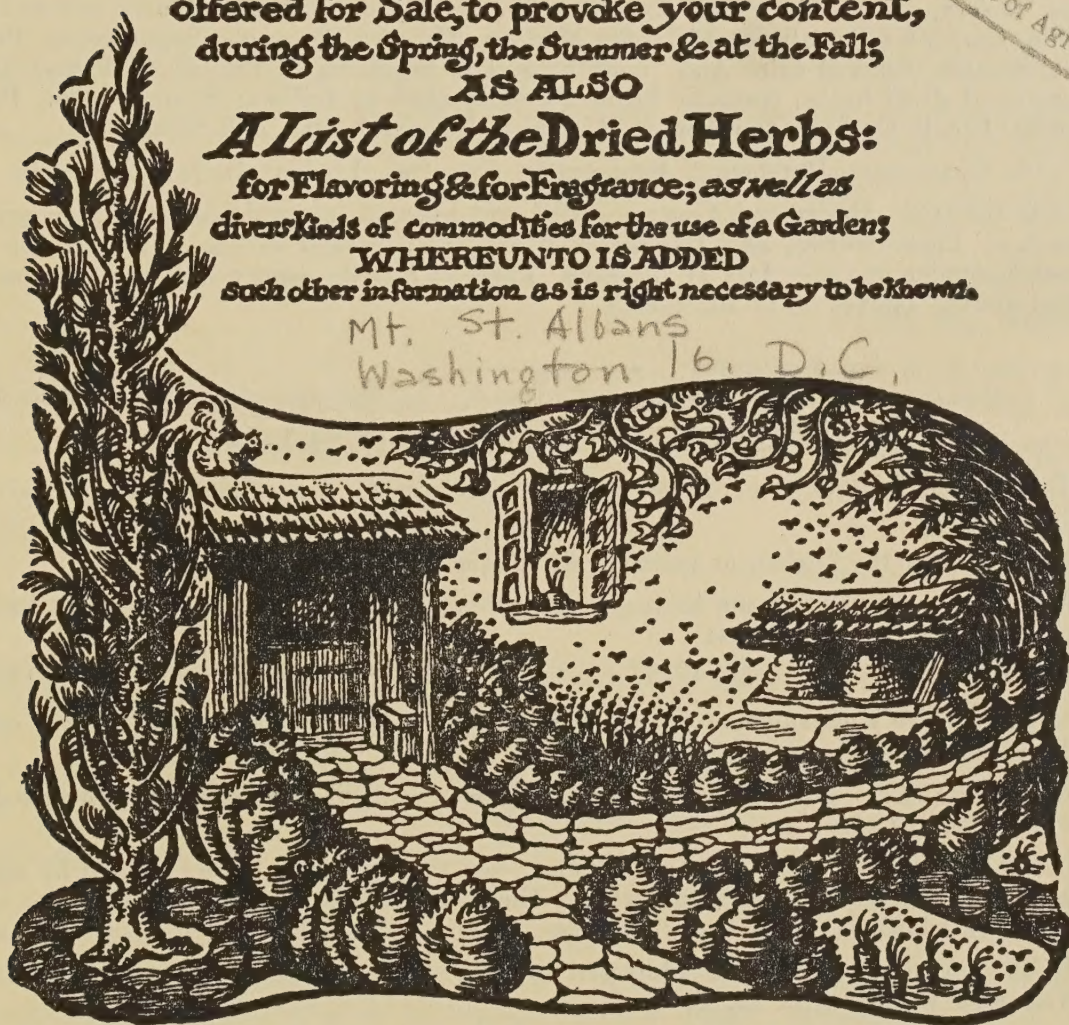 offered for Sale, to provoke your content,
during the Spring, the Summer & at the Fall;
AS ALSO
A List of the Dried Herbs:
for Flavoring & for Fragrance; as well as
divers Kinds of commodities for the use of a Garden;
WHEREUNTO IS ADDED
such other information as is right necessary to be Known.
Mt. St. Albans
Washington 16, D.C.
of Agr